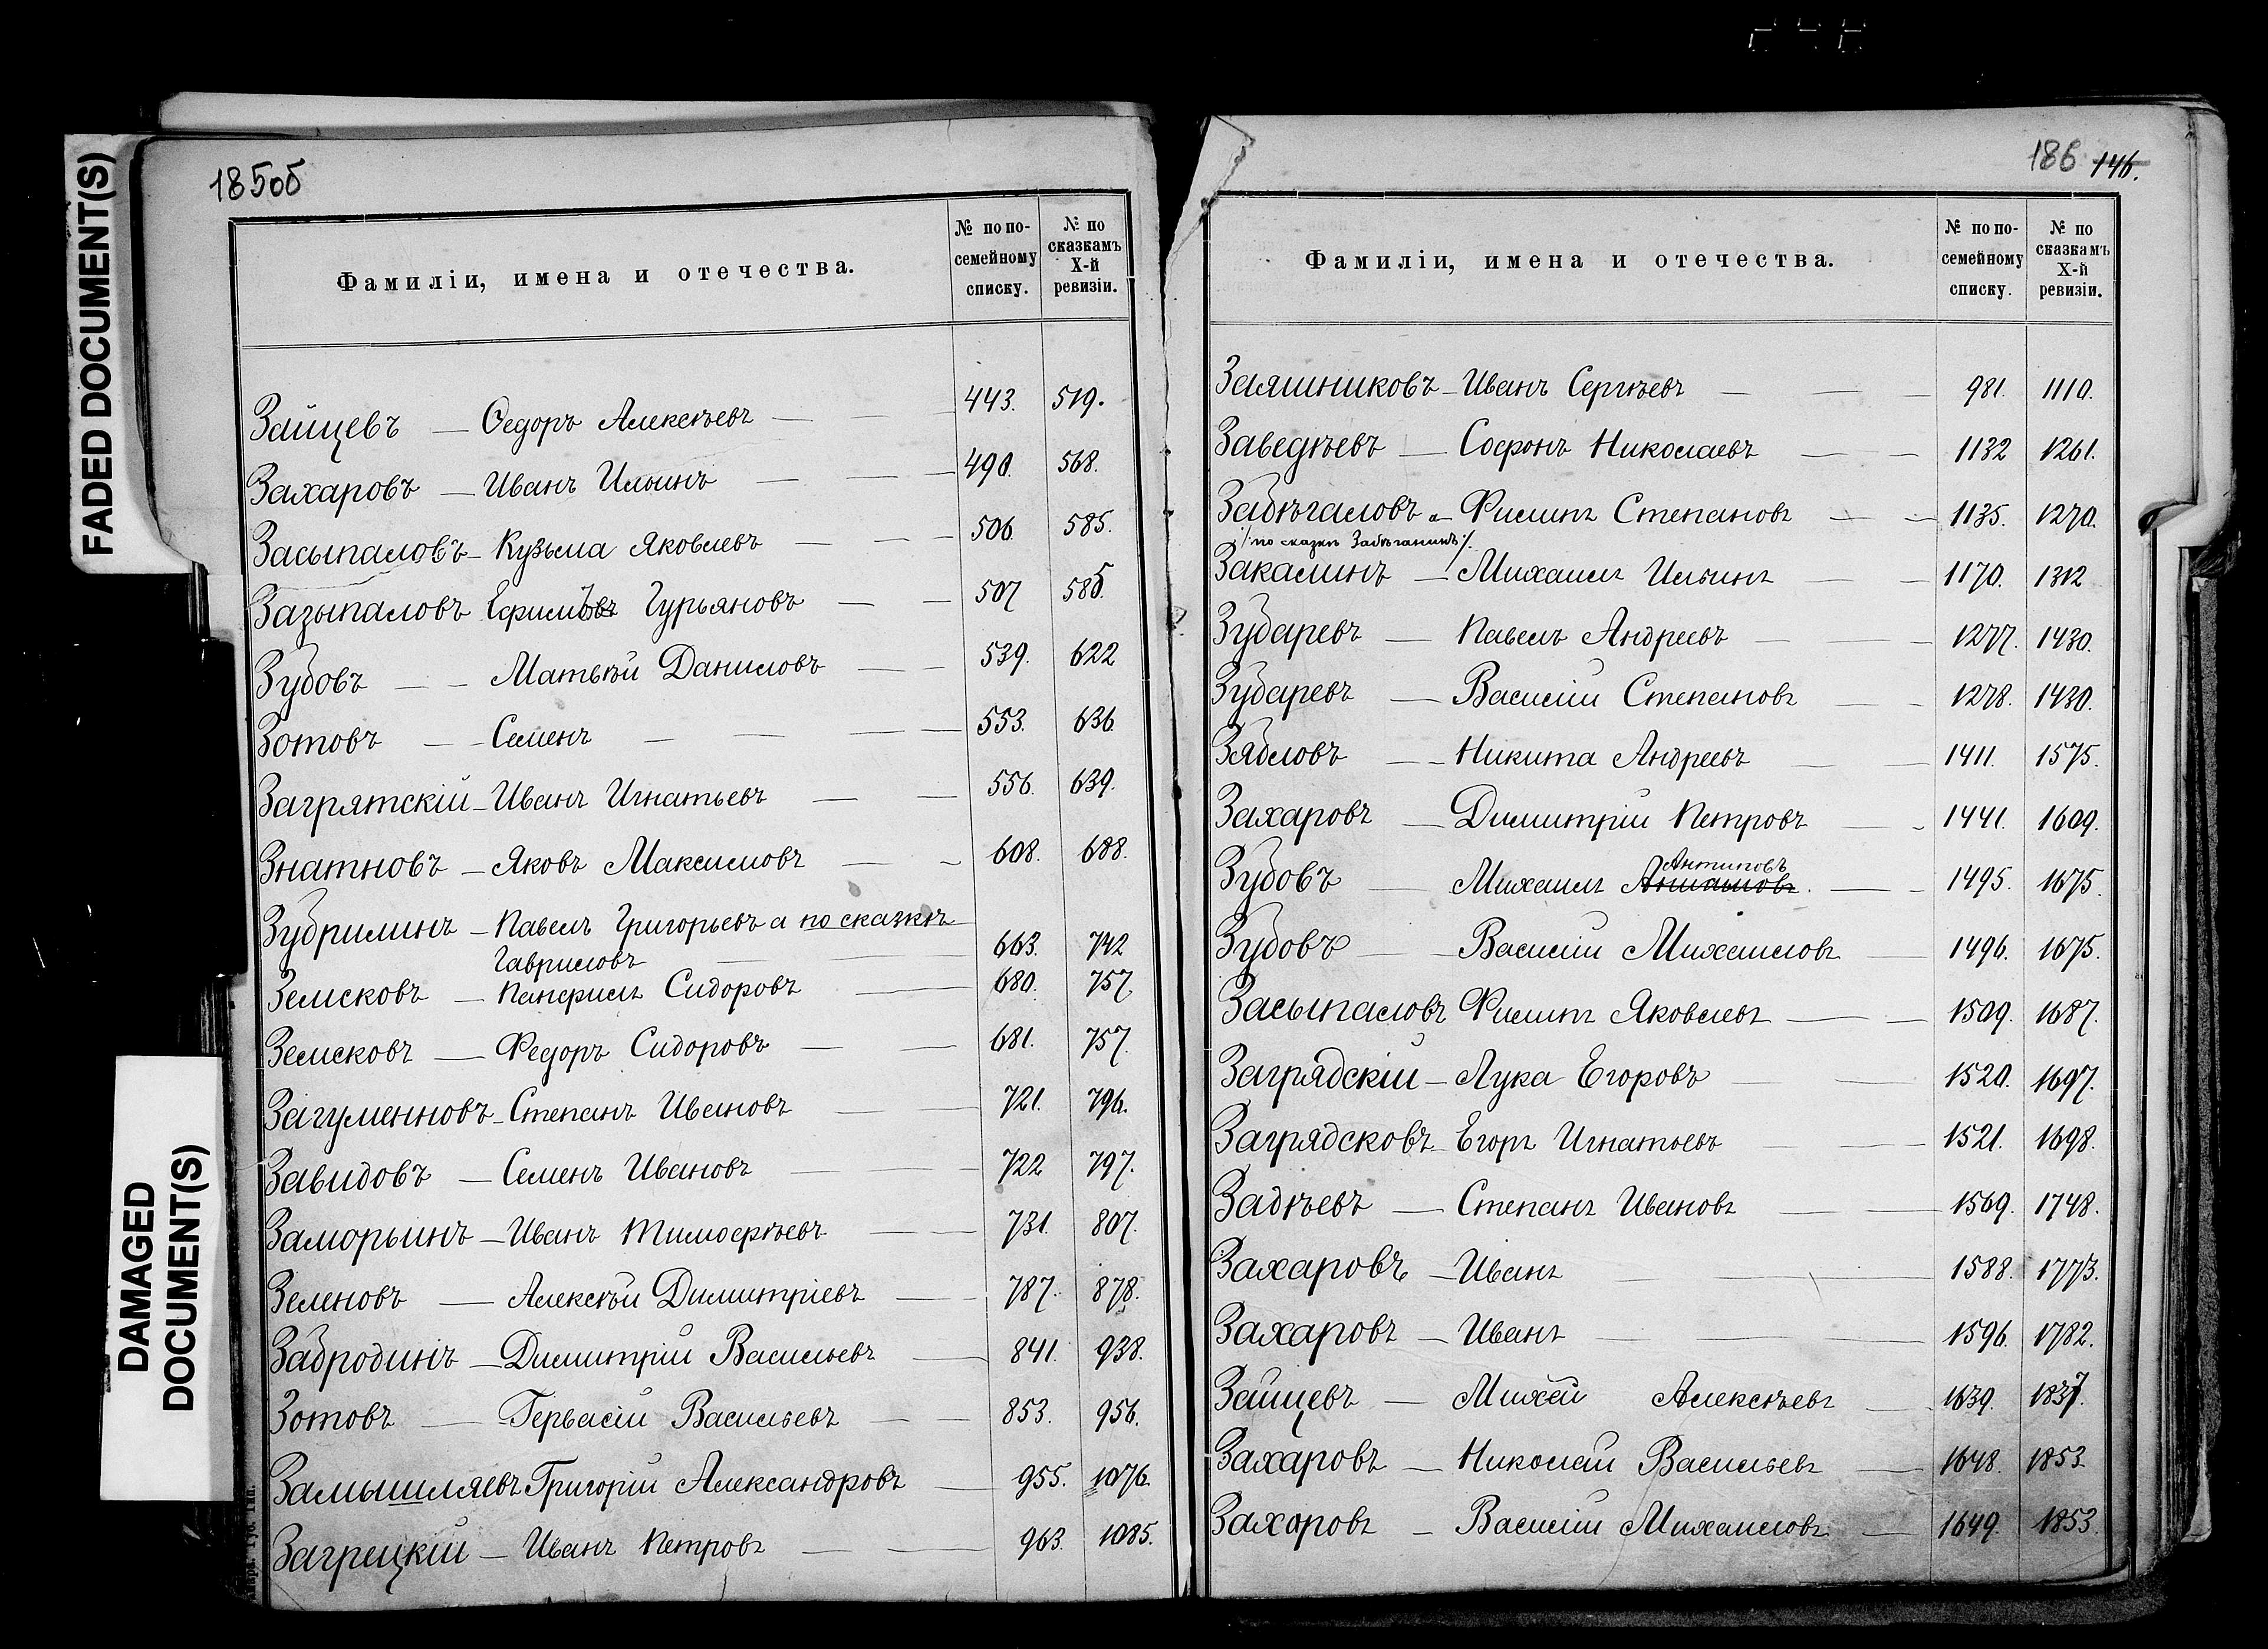 FADED DOCUMENT(S)
DAMAGED DOCUMENT(S)
185об
Фамиліи, имена и отечества. № по по-семейному списку. № по сказкамъ X-й ревизіи.
Зайцевъ — Ѳедоръ Алексѣевъ — 443. 519.
Захаровъ — Иванъ Ильинъ — — 490. 568.
Засыпаловъ — Кузьма Яковлевъ — — 506. 585.
Зазыпаловъ Гурьяновъ — — 507 585.
Зубовъ — — Матвѣй Даниловъ — — 539. 622
Зотовъ — — Семенъ — — — 553. 636.
Загрятскій — Иванъ Игнатьевъ — — 556. 639.
Знатновъ — Яковъ Максимовъ — — 608. 688.
Зубрилинъ — Павелъ Григорьевъ а по сказкѣ
Гавриловъ — — 663. 742
Земсковъ — Панфилъ Сидоровъ — 680. 757.
Земсковъ — Федоръ Сидоровъ — — 681. 757.
Загуменновъ — Степанъ Ивановъ — — 721. 796.
Завидовъ — Семенъ Ивановъ — — 722 797.
Заморьинъ — Иванъ Тимофѣевъ — — 731. 807.
Зеленовъ — Алексѣй Димитріевъ — 787. 878.
Забродинъ — Димитрій Васильевъ — 841. 938.
Зотовъ — Гервасій Васильевъ — — 853. 956.
Замышляевъ Григорій Александровъ — 955. 1076.
Загрецкій — Иванъ Петровъ — — 963. 1085.
186 146.
Фамиліи, имена и отечества. № по по-семейному списку. № по сказкамъ X-й ревизіи.
Заяшниковъ — Иванъ Сергѣевъ — — — 981. 1110.
Заведѣевъ — Софонъ Николаевъ — — 1132 1261.
Забѣгаловъ — Филипъ Степановъ — — 1135. 1270.
/: по сказкѣ Забѣганинъ :/
Закалинъ — Михаилъ Ильинъ — — 1170. 1312
Зударевъ — Павелъ Андреевъ — — 1277. 1430.
Зударевъ — Василій Степановъ — — 1278. 1430.
Зябловъ — — Никита Андреевъ — — 1411. 1575.
Захаровъ — Димитрій Петровъ — — 1441. 1609.
Антиповъ
Зубовъ — Михаилъ — — 1495. 1675.
Зубовъ — — Василій Михаиловъ — 1496. 1675.
Засыпаловъ Филипъ Яковлевъ — — 1509. 1687.
Загрядскій — Лука Егоровъ — 1520. 1697.
Загрядсковъ — Егоръ Игнатьевъ — 1521. 1698.
Задѣевъ — Степанъ Ивановъ — — 1569. 1748.
Захаровъ — Иванъ — 1588. 1773.
Захаровъ — Иванъ — — 1596. 1782.
Зайцевъ — Михей Алексѣевъ — 1639. 1837.
Захаровъ — Николай Васильевъ — 1648. 1853.
Захаровъ — Василій Михаиловъ — 1649. 1853.